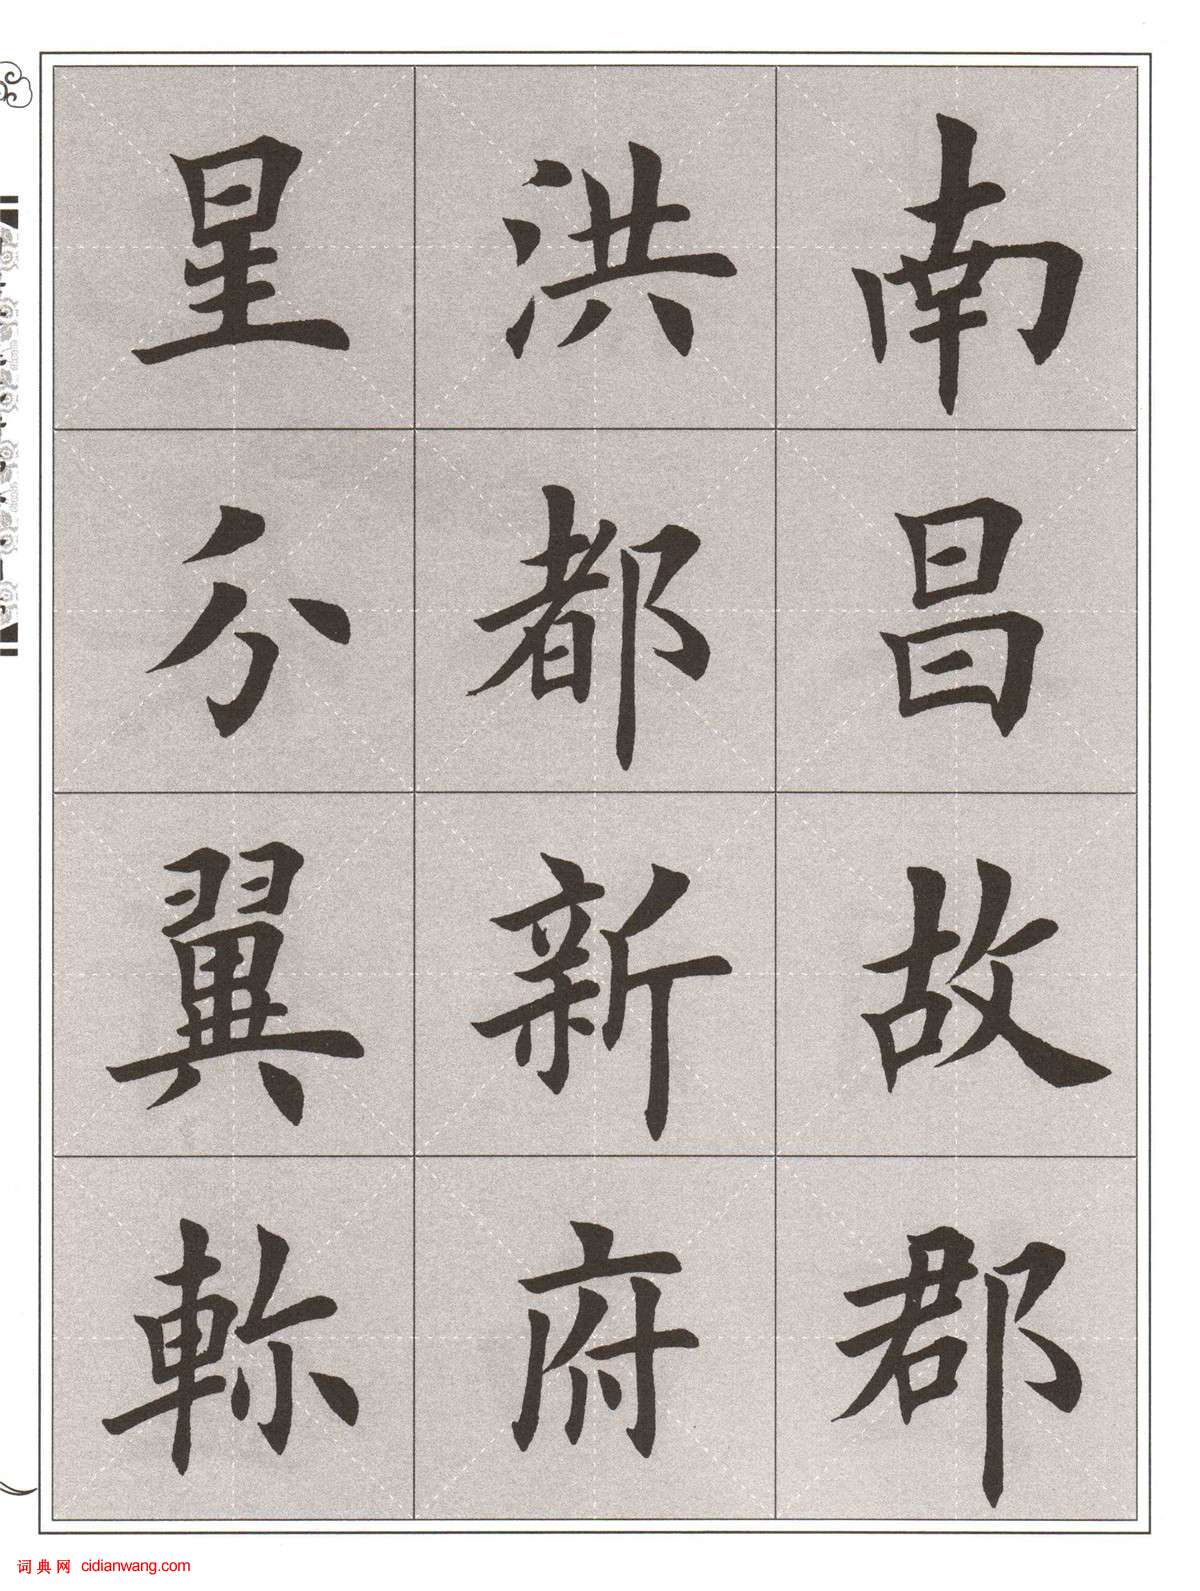 南昌故郡
洪都新府
星分翼軫
词典网 cidianwang.com